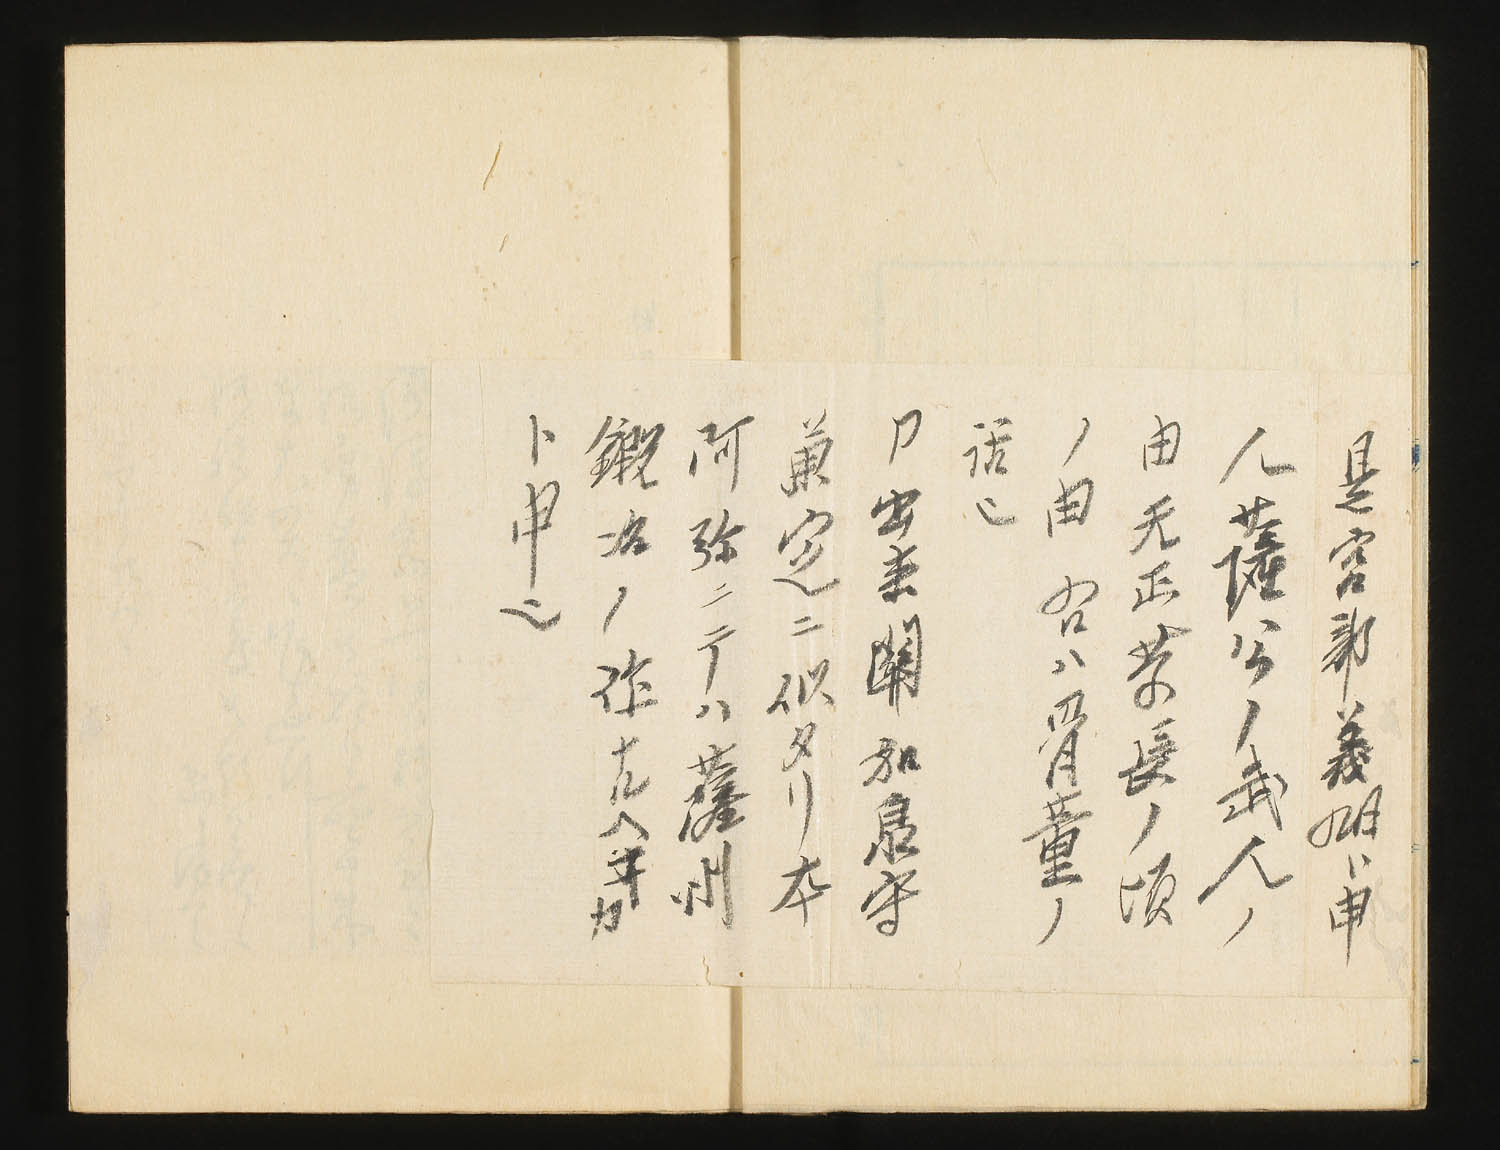 是宮部義明ト申
人薩公ノ武人ノ
由天正慶長ノ頃
ノ由 右ハ胃童ノ
話也
尸 出来 関和泉守
兼定ニ似タリ本
阿弥ニテハ薩州
鍛冶ノ作ナルヘキカ
ト申也